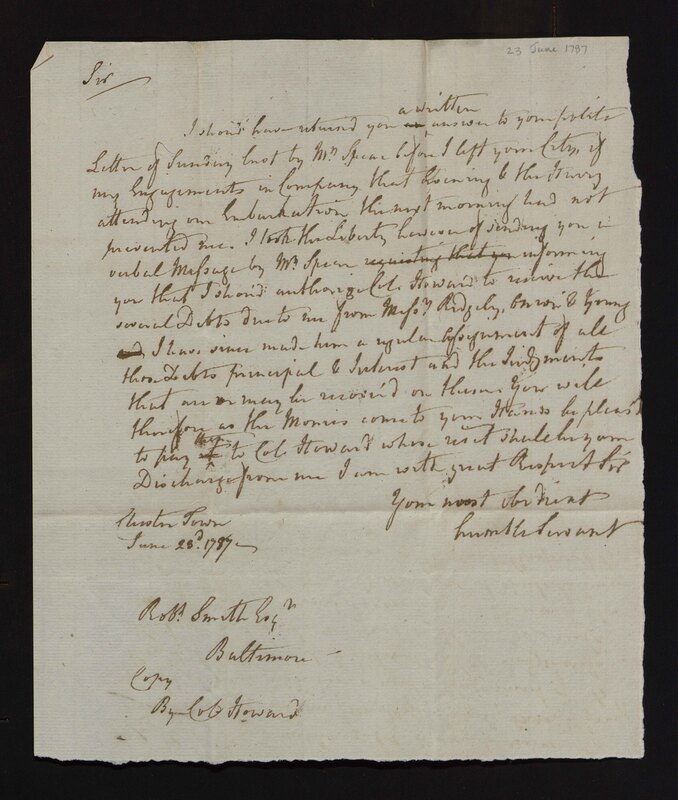 23 June 1787
Sir
a written
I shou'd have returned you an answer to your polite
Letter of Sunday last by Mr. Spear before I left your City, if
my Engagements in Company that Evening & the Hurry
attending our Embarkation the next morning had not
prevented me. I took the Liberty however of sending you a
verbal Message by Mr. Spear requesting that you informing
you that I shou'd authorize Colo. Howard to receive the
several Debts due to me from Messrs. Ridgely, & Young
and I have since made him a regular assignment of all
those Debts principal & Interest and the Judgments
that are or may be recover'd on them. You will
therefore as the Monies come to your Hands be pleas'd
to pay to Colo. Howard whose rect. shall be your
Discharge from me I am with great Respect Sir
Your most obedient
humble Servant
Chester Town
June 23d. 1787
Robt. Smith Esqr.
Baltimore
Copy
By Colo. Howard